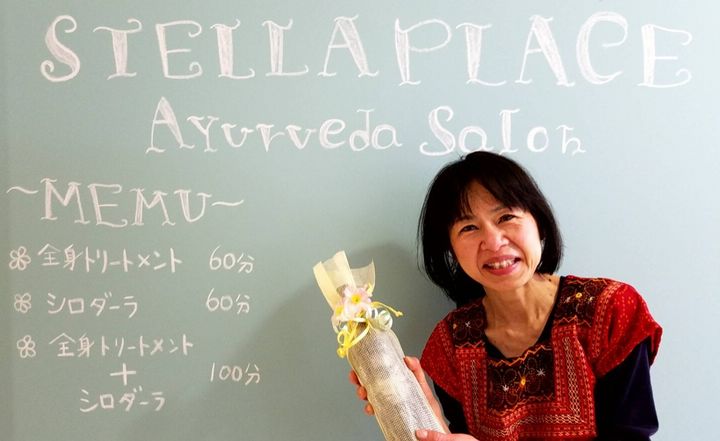 STELLA PLACE
Ayurveda Salon
~MEMU~
全身トリートメント 60分
シロダーラ 60分
全身トリートメント
+ 100分
シロダーラ